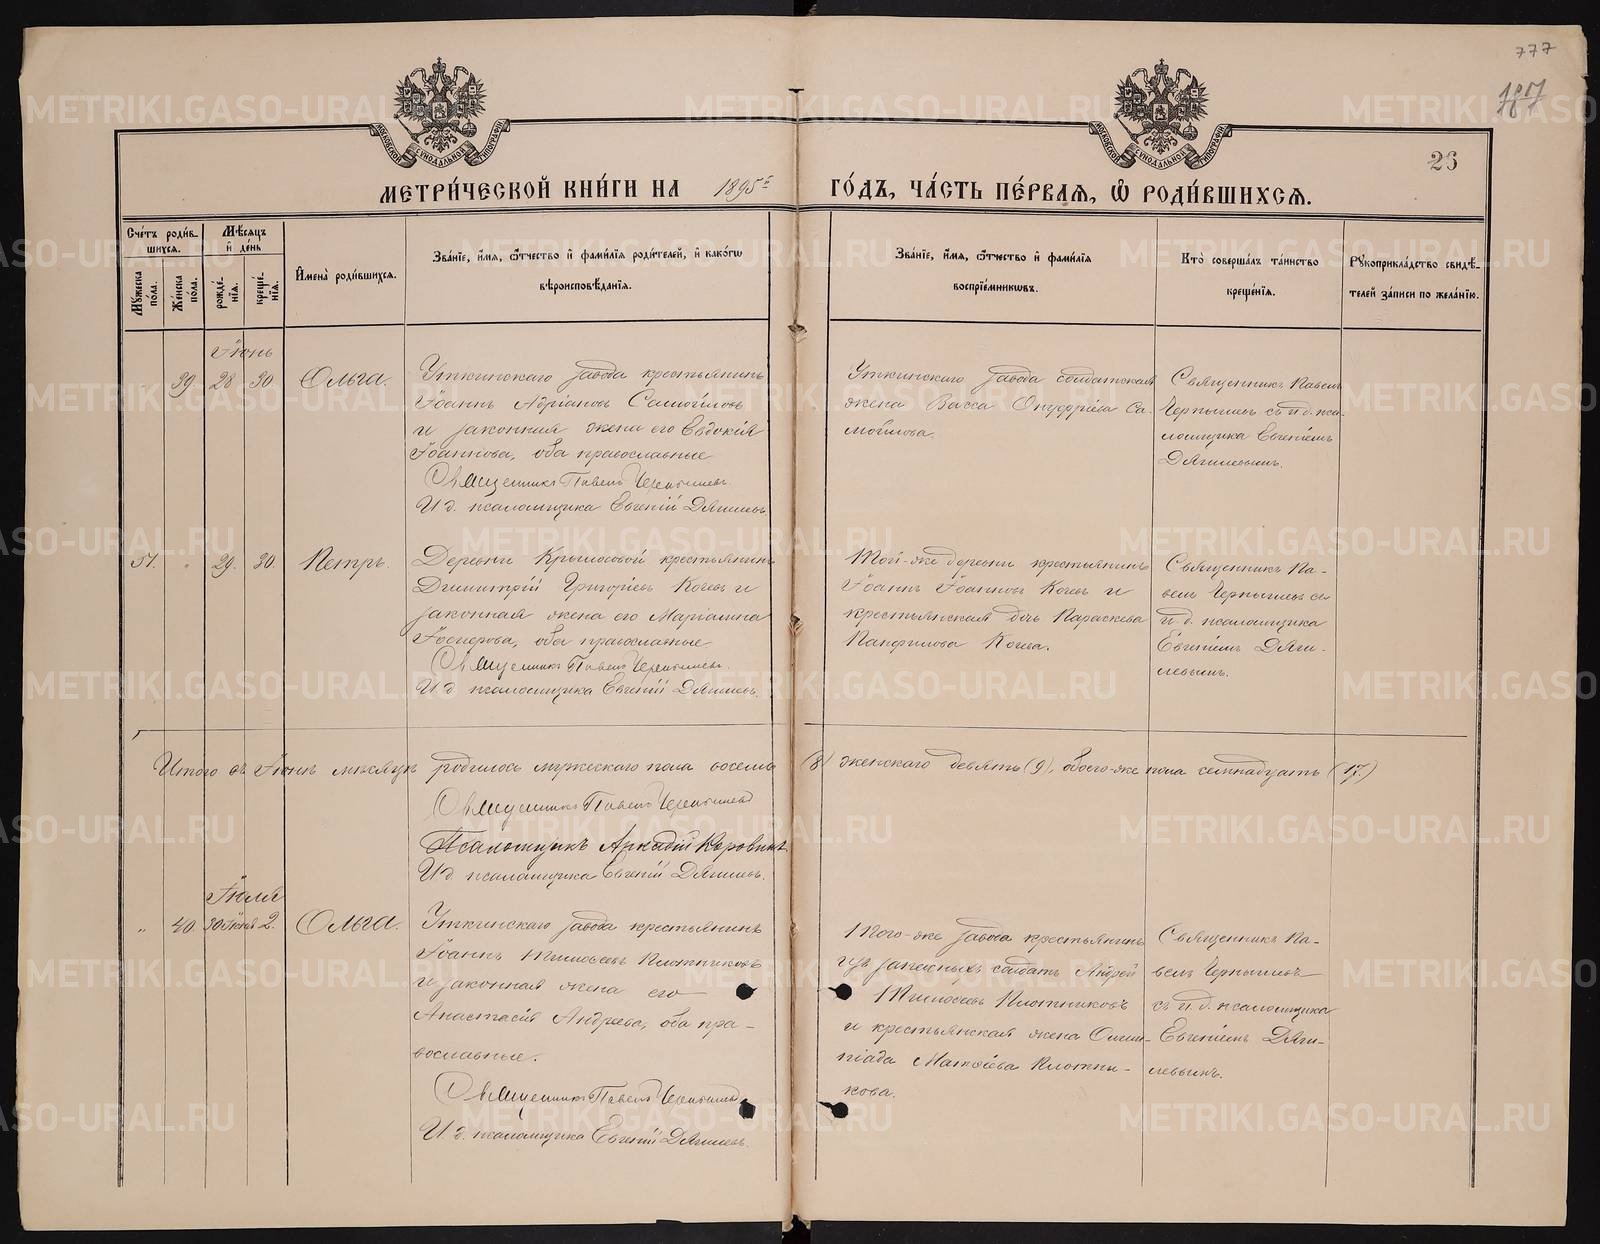 777
187
26
МОСКОВСКОЙ СѴНОДАЛЬНОЙ ТИПОГРАФІИ
МОСКОВСКОЙ СѴНОДАЛЬНОЙ ТИПОГРАФІИ
МЕТРИ́ЧЕСКОЙ КНИ́ГИ НА 1895 г. ГО́ДЪ, ЧА́СТЬ ПЕ́РВАѦ, Ѡ҆ РОДИ́ВШИХСѦ.
Сче́тъ роди́в-
шихсѧ.
Мѣ́сѧцъ
и҆ де́нь
Мꙋ́жеска
по́ла.
Же́нска
по́ла.
рожде́-
нїѧ.
креще́-
нїѧ.
И҆мена̀ роди́вшихсѧ.
Зва́нїе, и҆́мѧ, ѻ҆́тчество и҆ фами́лїѧ роди́телей, и҆ како́гѡ
вѣроисповѣ́данїѧ.
Зва́нїе, и҆́мѧ, ѻ҆́тчество и҆ фами́лїѧ
воспрїе́мникѡвъ.
Кто̀ соверша́лъ та́инство
креще́нїѧ.
Рꙋкоприкла́дство свидѣ́-
телей за́писи по жела́нїю.
Іюнь
39. 28 30. Ольга.
Уткинскаго завода крестьянинъ
Іоаннъ Адріановъ Самойловъ
и законная жена его Евдокія
Іоаннова, оба православные
Священникъ Павелъ Чернышевъ.
И. д. псаломщика Евгеній Дягилевъ.
Уткинскаго завода солдатская
жена Васса Онуфріева Са-
мойлова.
Священникъ Павелъ
Чернышевъ съ и. д. пса-
ломщика Евгеніемъ
Дягилевымъ.
51. " 29. 30. Петръ.
Деревни Крылосовой крестьянинъ
Димитрій Григорьевъ Кочевъ и
законная жена его Маріамна
, оба православные
Священникъ Павелъ Чернышевъ.
И. д. псаломщика Евгеній Дягилевъ.
Той-же деревни крестьянинъ
Іоаннъ Іоанновъ Кочевъ и
крестьянская дочь Параскева
Панфилова Кочева.
Священникъ Па-
велъ Чернышевъ съ
и. д. псаломщика
Евгеніемъ Дяги-
левымъ.
Итого въ Іюнѣ мѣсяцѣ родилось мужескаго пола восемь (8) женскаго девять (9), обоего-же пола семнадцать (17.)
Священникъ Павелъ Чернышевъ
Псаломщикъ Аркадій Коровинъ
И. д. псаломщика Евгеній Дягилевъ.
Іюля
" 40. 30 Іюня 2. Ольга.
Уткинскаго завода крестьянинъ
Іоаннъ Тимоѳеевъ Плотниковъ
и законная жена его
Анастасія Андреева, оба пра-
вославные.
Священникъ Павелъ Чернышевъ
И. д. псаломщика Евгеній Дягилевъ.
Того-же завода крестьянинъ
изъ запасныхъ солдатъ Андрей
Тимоѳеевъ Плотниковъ
и крестьянская жена Олим-
піада Матѳіева Плотни-
кова.
Священникъ Па-
велъ Чернышевъ
съ и. д. псаломщика
Евгеніемъ Дяги-
левымъ.
METRIKI.GASO-URAL.RU